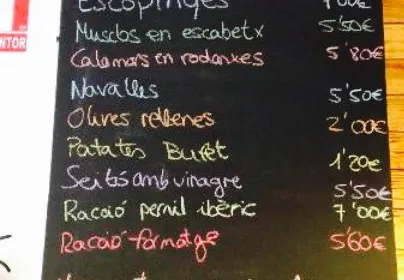 NTOR
Escopinyes
Musclos en escabetx 5'50€
Calamars en rodanxes 5'80€
Navalles 5'50€
Olives rellenes 2'00€
Patates Buret 1'20€
Seitó amb vinagre 5'50€
Ració pernil ibèric 7'00€
Ració formatge 5'60€